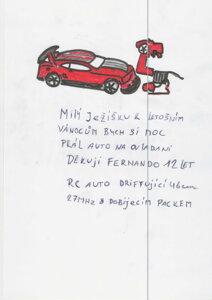 Milý Ježíšku k letošním
vánocům bych si moc
přál auto na ovládání
Děkuji FERNANDO 12 LET
RC AUTO DRIFTUJÍCÍ 46cm
27MHz s dobíjecím packem